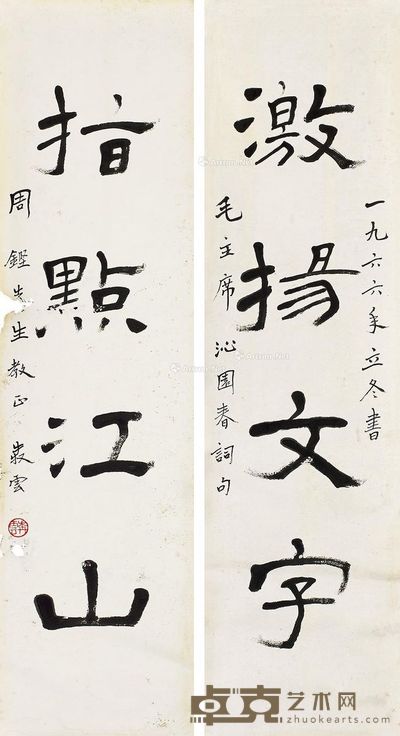 一九六六年立冬書
激揚文字
毛主席沁園春詞句
指點江山
周鏗先生教正 裘雲
卓克艺术网
zhuokearts.com